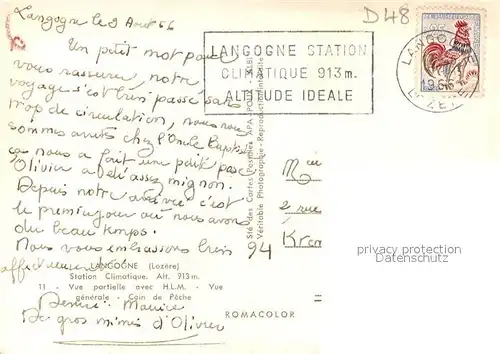 Langogne le 9 Août 66
Un petit mot pour
vous rassurer, notre
voyage s'est bien passé sans
trop de circulation, nous nous
sommes arrêtés chez l'Oncle Baptiste
ça nous a fait une petite pose
Olivier a été assez mignon.
Depuis notre arrivée c'est
le premier jour où nous avons
du beau temps.
Nous vous embrassons bien
affectueusement
Denise Maurice
De gros mimis d'Olivier
LANGOGNE (Lozère)
Station Climatique. Alt. 913 m.
11 - Vue partielle avec H.L.M. - Vue
générale - Coin de Pêche
ROMACOLOR
Sté des Cartes Postales APA-POUX - ALBI
Véritable Photographie - Reproduction interdite
LANGOGNE STATION
CLIMATIQUE 913 m.
ALTITUDE IDEALE
D48
1966
LOZERE
Mme
rue
94 Krem
permission of
Datenschutz